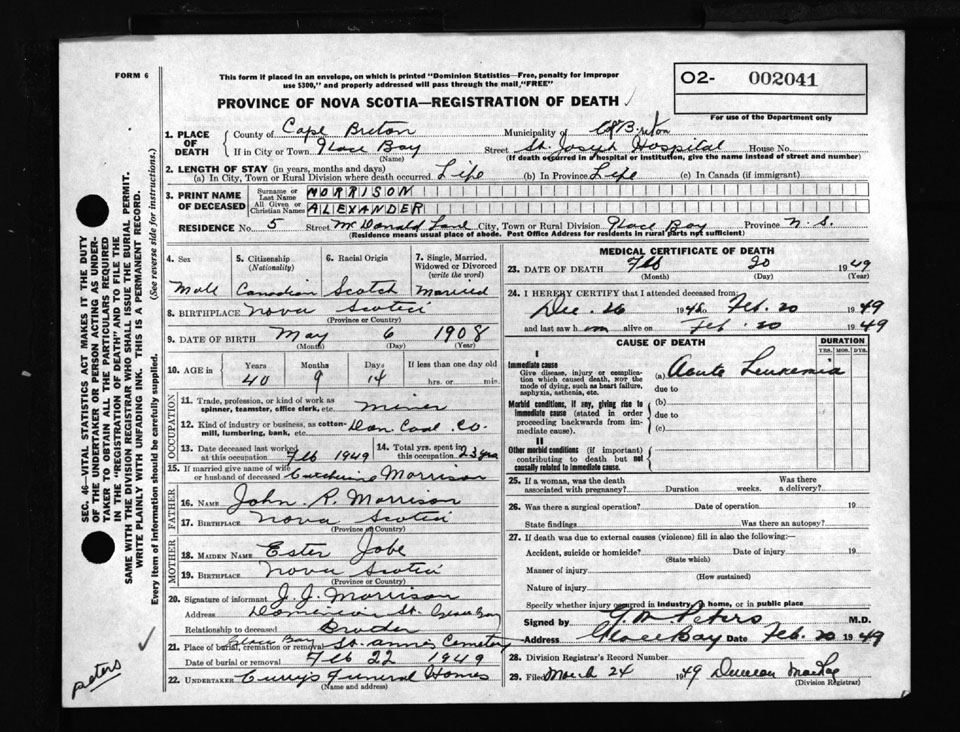 FORM 6
This form if placed in an envelope, on which is printed "Dominion Statistics—Free, penalty for improper
use $300," and properly addressed will pass through the mail, "FREE"
O2- 002041
For use of the Department only
PROVINCE OF NOVA SCOTIA—REGISTRATION OF DEATH
1. PLACE OF DEATH
County of Cape Breton Municipality of C Breton
If in City or Town Glace Bay Street St. Joseph Hospital House No.
(Name) (If death occurred in a hospital or institution, give the name instead of street and number)
2. LENGTH OF STAY (in years, months and days)
(a) In City, Town or Rural Division where death occurred Life (b) In Province Life (c) In Canada (if immigrant)
3. PRINT NAME OF DECEASED
Surname or Last Name MORRISON
All Given or Christian Names ALEXANDER
RESIDENCE No. 5 Street McDonald Lane City, Town or Rural Division Glace Bay Province N. S.
(Residence means usual place of abode. Post Office Address for residents in rural parts not sufficient)
4. Sex
Male
5. Citizenship
(Nationality)
Canadian
6. Racial Origin
Scotch
7. Single, Married,
Widowed or Divorced
(write the word)
Married
8. BIRTHPLACE Nova Scotia
(Province or Country)
9. DATE OF BIRTH May 6 1908
(Month) (Day) (Year)
10. AGE in
Years Months Days If less than one day old
40 9 14 hrs. or min.
OCCUPATION
11. Trade, profession, or kind of work as
spinner, teamster, office clerk, etc. Miner
12. Kind of industry or business, as cotton-
mill, lumbering, bank, etc. Dom Coal Co.
13. Date deceased last worked
at this occupation Feb 1949
14. Total yrs. spent in
this occupation 23 yrs
15. If married give name of wife
or husband of deceased Catherine Morrison
FATHER
16. NAME John R. Morrison
17. BIRTHPLACE Nova Scotia
(Province or Country)
MOTHER
18. MAIDEN NAME Ester Jobe
19. BIRTHPLACE Nova Scotia
(Province or Country)
20. Signature of informant J. J. Morrison
Address Dominion St. Glace Bay
Relationship to deceased Broder
21. Place of burial, cremation or removal Glace Bay St. Anns Cemetery
Date of burial or removal Feb 22 1949
22. UNDERTAKER Curry's Funeral Homes
(Name and address)
MEDICAL CERTIFICATE OF DEATH
23. DATE OF DEATH Feb 20 1949
(Month) (Day) (Year)
24. I HEREBY CERTIFY that I attended deceased from:
Dec. 26 194 to Feb. 20 1949
and last saw him alive on Feb. 20 1949
CAUSE OF DEATH
DURATION
YRS. MOS. DYS.
I
Immediate cause
Give disease, injury or complica-
tion which caused death, not the
mode of dying, such as heart failure,
asphyxia, asthenia, etc.
(a) Acute Leukemia
due to
Morbid conditions, if any, giving rise to
immediate cause (stated in order
proceeding backwards from im-
mediate cause).
(b)
due to
(c)
II
Other morbid conditions (if important)
contributing to death but not
causally related to immediate cause.
25. If a woman, was the death
associated with pregnancy? Duration weeks. Was there
a delivery?
26. Was there a surgical operation? Date of operation 19
State findings Was there an autopsy?
27. If death was due to external causes (violence) fill in also the following:—
Accident, suicide or homicide? Date of injury 19
(State which)
Manner of injury
(How sustained)
Nature of injury
Specify whether injury occurred in industry, in home, or in public place
Signed by Peters M.D.
Address Glace Bay Date Feb. 20 1949
28. Division Registrar's Record Number
29. Filed March 24 1949 Duncan MacKay
(Division Registrar)
SEC. 46—VITAL STATISTICS ACT MAKES IT THE DUTY
OF THE UNDERTAKER OR PERSON ACTING AS UNDER-
TAKER TO OBTAIN ALL THE PARTICULARS REQUIRED
IN THE "REGISTRATION OF DEATH" AND TO FILE THE
SAME WITH THE DIVISION REGISTRAR WHO SHALL ISSUE THE BURIAL PERMIT.
WRITE PLAINLY WITH UNFADING INK. THIS IS A PERMANENT RECORD.
Every item of information should be carefully supplied. (See reverse side for instructions.)
peters